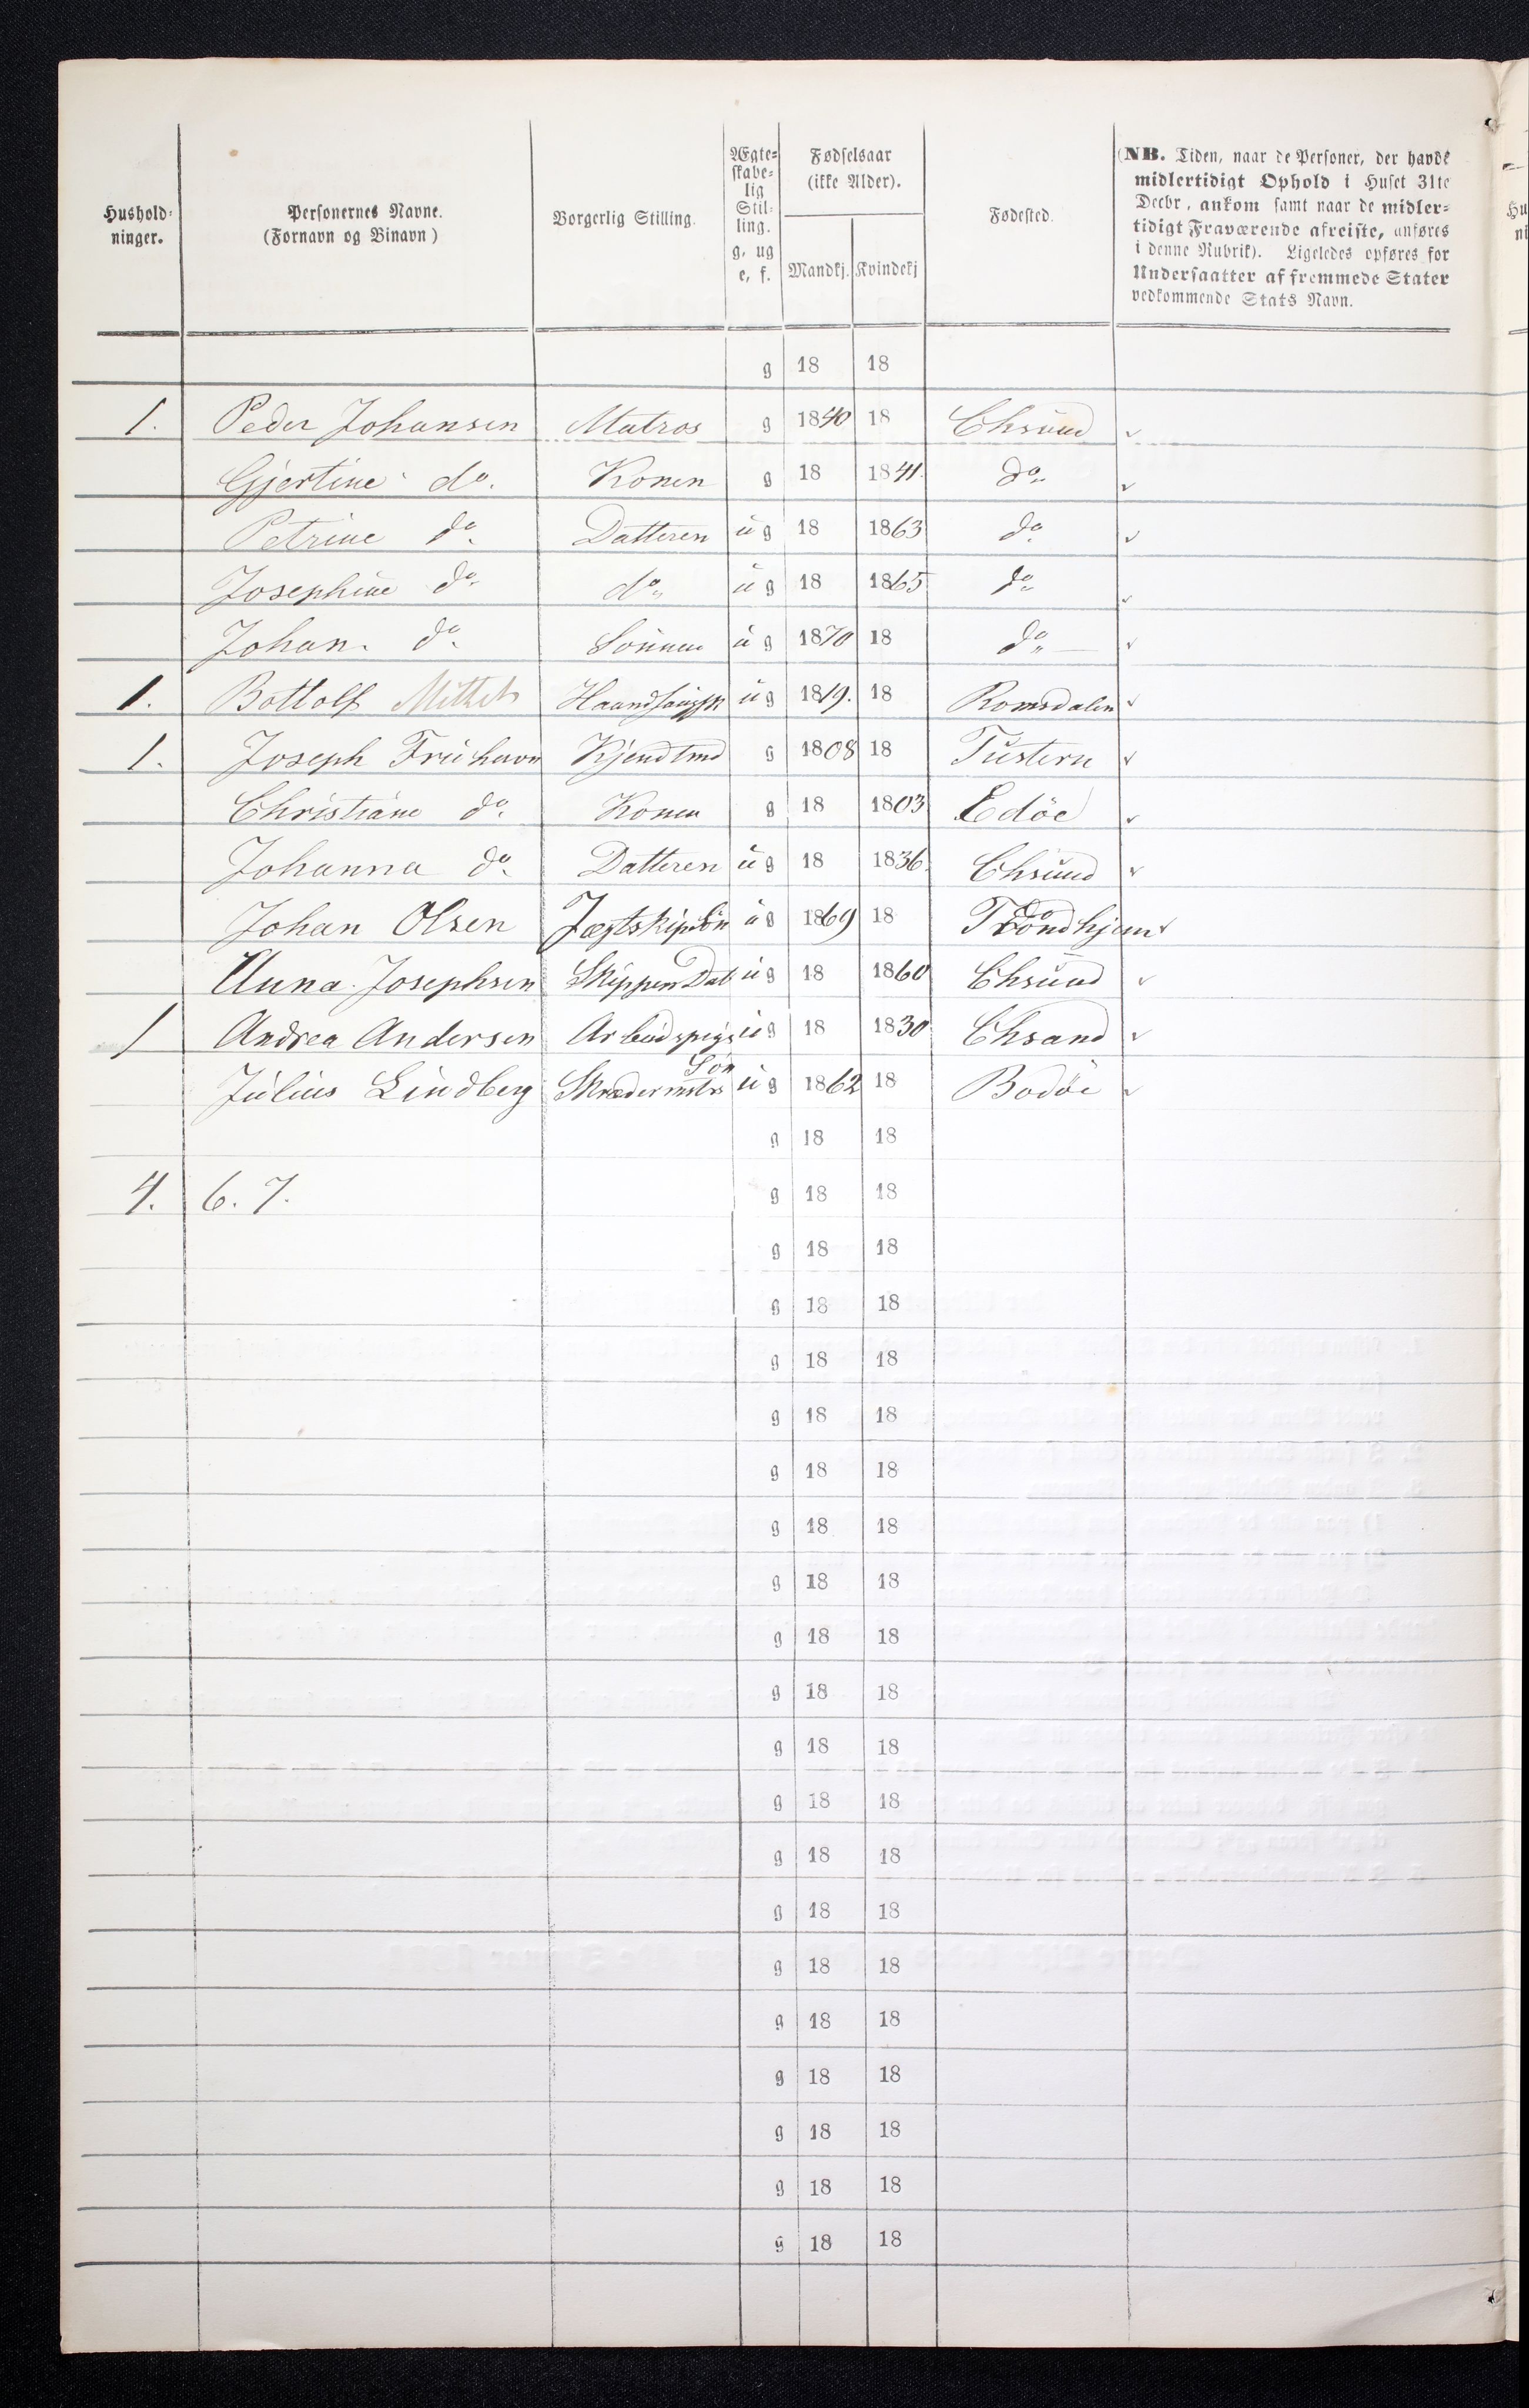 Hushold-
ninger.
Personernes Navne.
(Fornavn og Binavn)
Borgerlig Stilling.
Ægte-
skabe-
lig
Stil-
ling.
g, ug
e, f.
Fødselsaar
(ikke Alder).
Mandkj. Kvindekj
Fødested.
(NB. Tiden, naar de Personer, der havde
midlertidigt Ophold i Huset 31te
Decbr, ankom samt naar de midler-
tidigt Fraværende afreiste, anføres
i denne Rubrik). Ligeledes opføres for
Undersaatter af fremmede Stater
vedkommende Stats Navn.
g 18 18
1. Peder Johansen Matros g 1840 18 Chsund
Gjertine do. Konen g 18 1841. do
Petrine do Datteren ug 18 1863 do
Josephine do do ug 18 1865 do
Johan. do Sönnen ug 1870 18 do
1. Bottolf ug 1819. 18 Romsdalen
1. Joseph Friehavn g 1808 18 Tustern
Christiane do Konen g 18 1803 Edöe
Johanna do Datteren ug 18 1836. Chsund
Johan Olsen ug 1869 18 Trondhjem
Anna. Josephsen Skippers Dat ug 18 1860 Chsund
1 Andrea Andersen Arbeidspige ug 18 1830 Chsand
Julius Lindberg Skrædermstrs Sön ug 1862 18 Bodöe
g 18 18
4. 6. 7. g 18 18
g 18 18
g 18 18
g 18 18
g 18 18
g 18 18
g 18 18
g 18 18
g 18 18
g 18 18
g 18 18
g 18 18
g 18 18
g 18 18
g 18 18
g 18 18
g 18 18
g 18 18
g 18 18
g 18 18